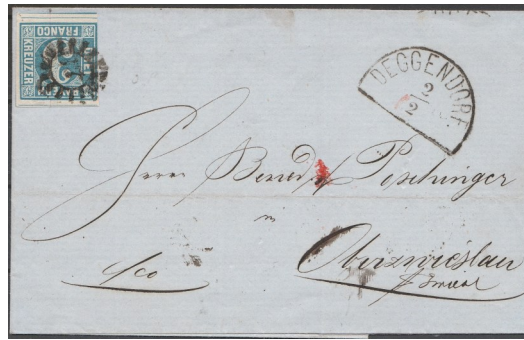 FRANCO
KREUZER
DEGGENDORF
2
2
Herrn Bened. Poschinger
in
Oberzwieslau
fco